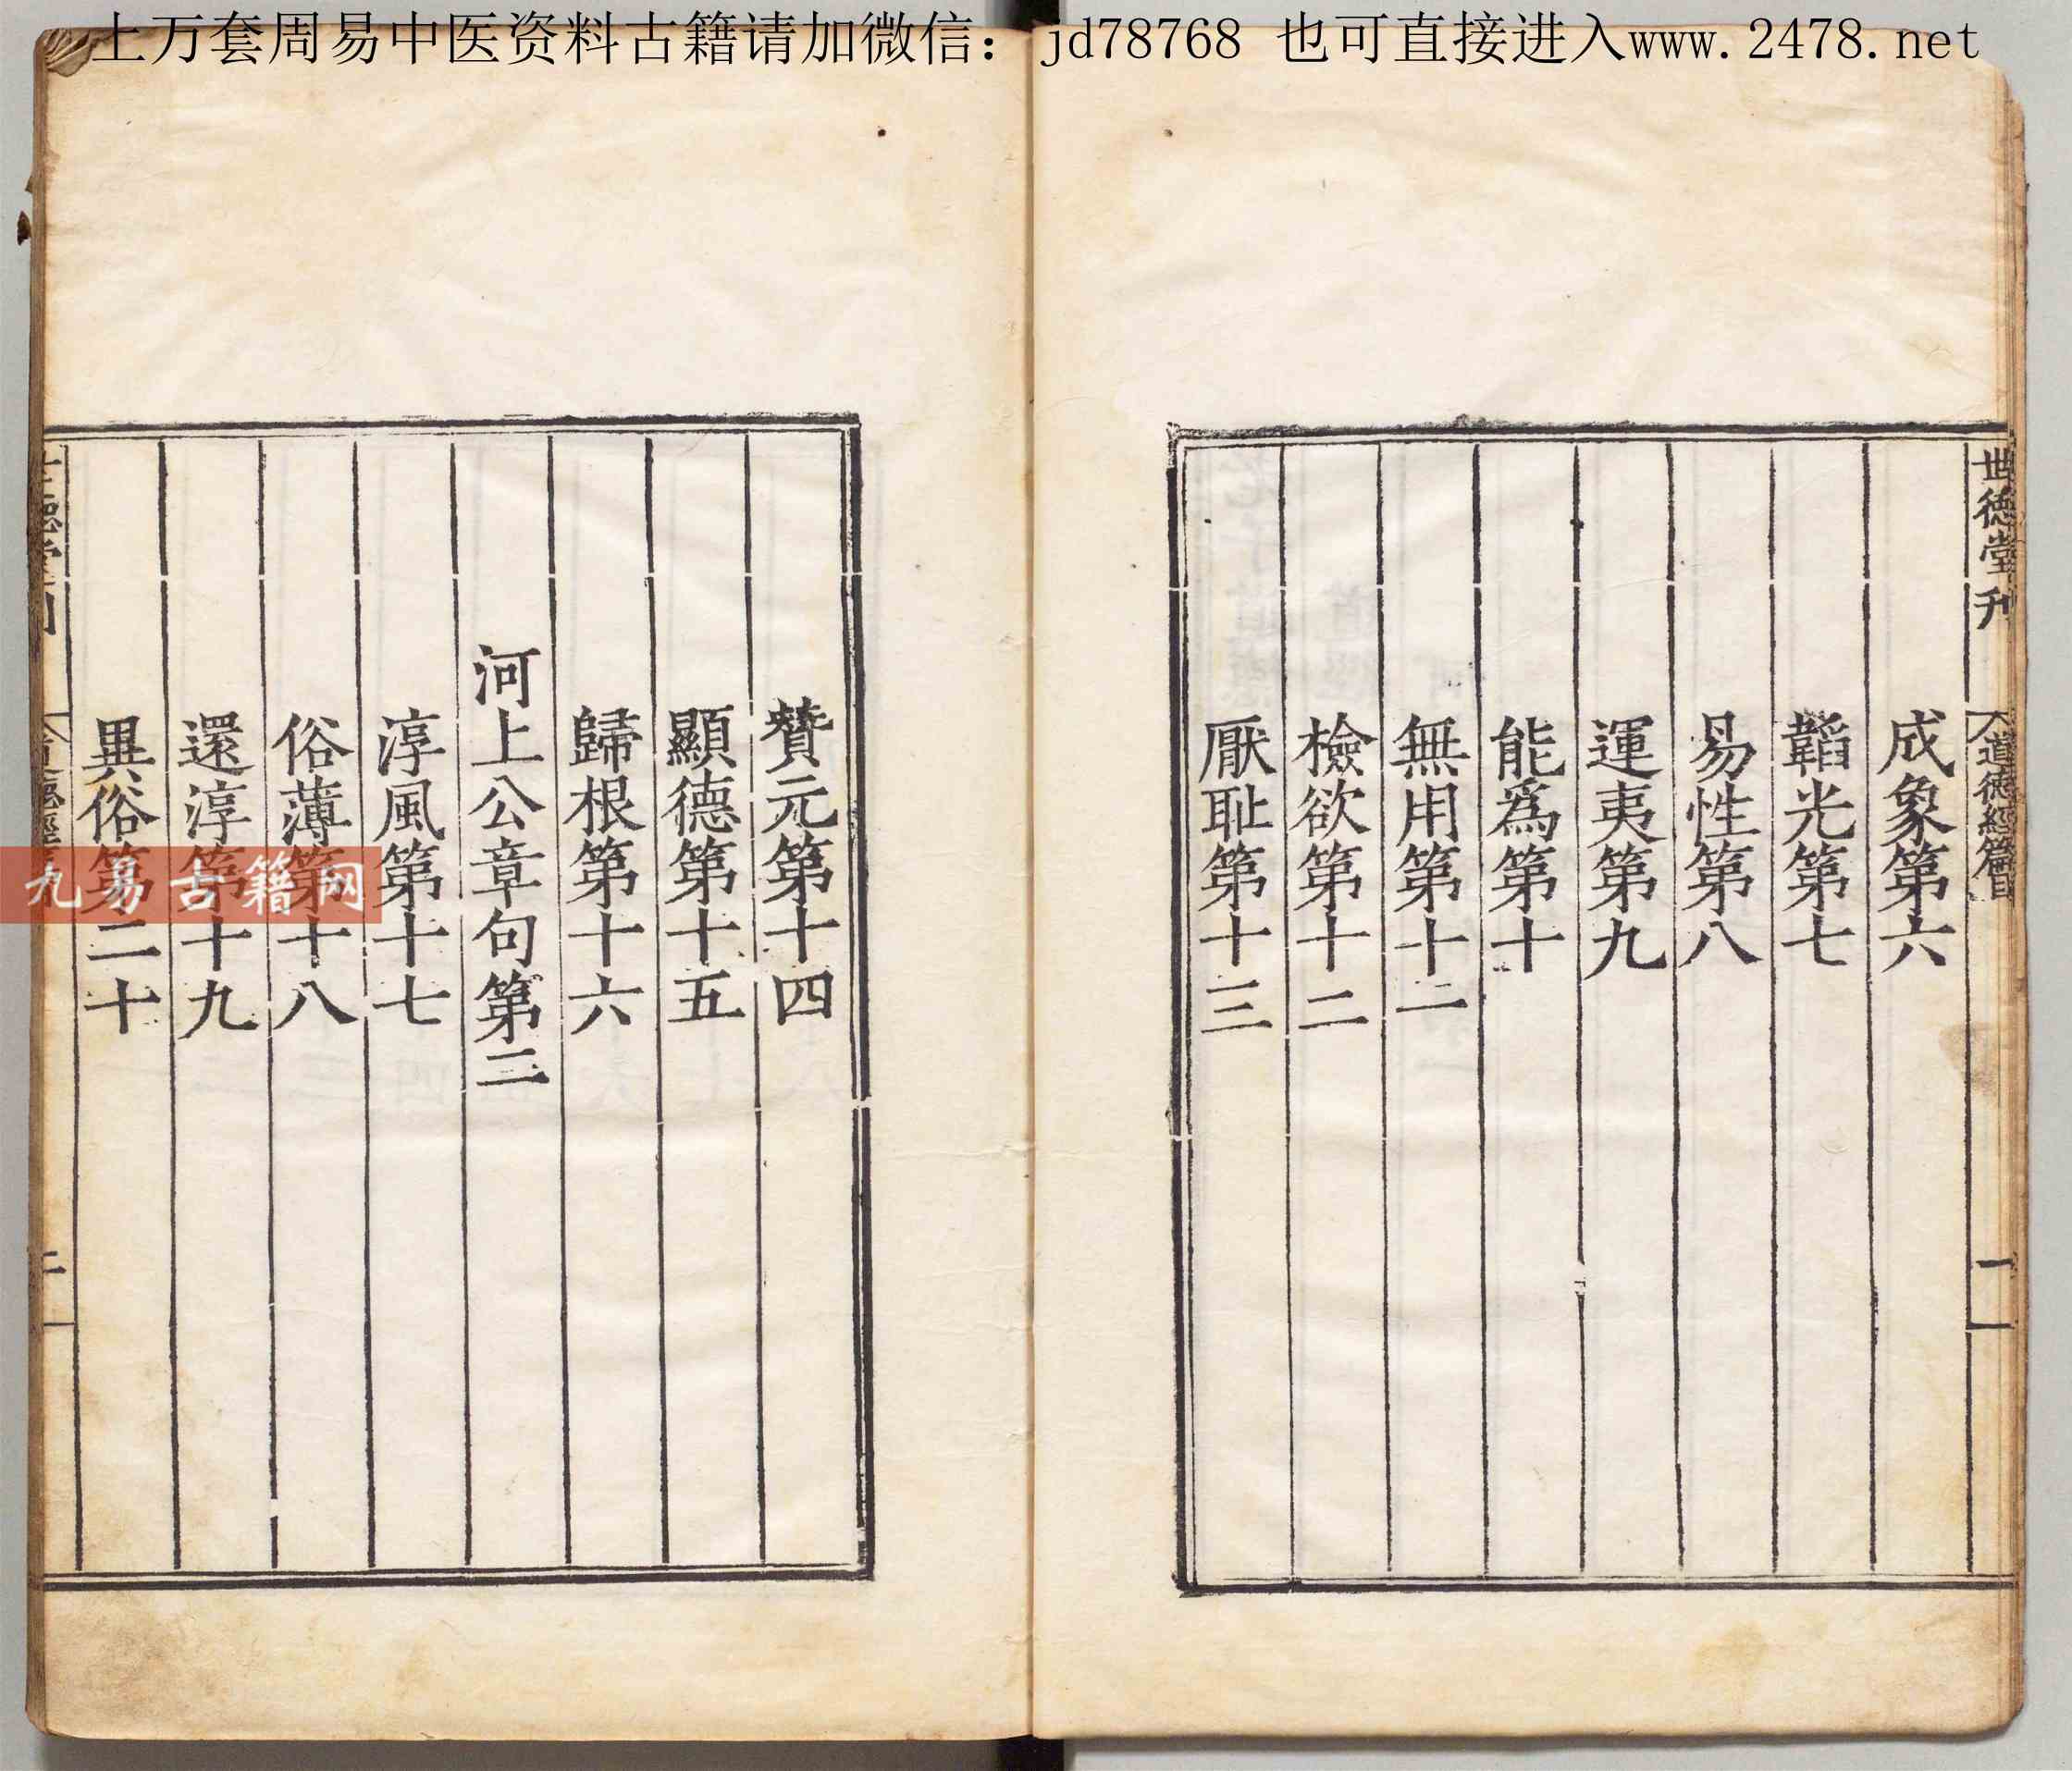 上万套周易中医资料古籍请加微信：jd78768 也可直接进入www.2478.net
世德堂刊
道德經篇目
一
成象第六
韜光第七
易性第八
運夷第九
能爲第十
無用第十一
檢欲第十二
厭恥第十三
贊元第十四
顯德第十五
歸根第十六
河上公章句第二
淳風第十七
俗薄第十八
還淳第十九
異俗第二十
九易古籍网